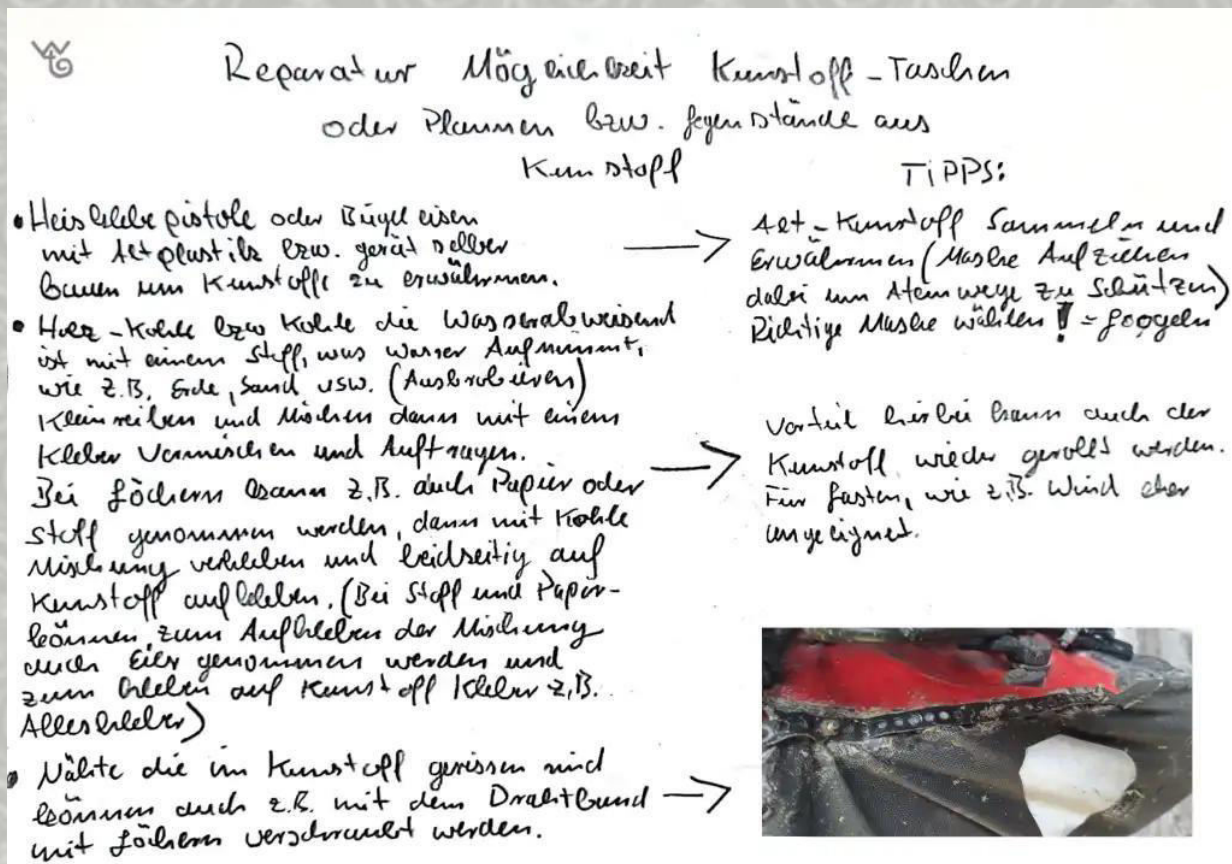 Reparatur Möglichkeit Kunstoff-Taschen
oder Plannen bzw. gegenstände aus
Kunstoff
• Heisklebepistole oder Bügeleisen
mit Altplastik bzw. gerät selber
bauen um Kunstoffe zu erwährmen.
• Holz-Kohle bzw Kohle die Wasserabweisend
ist mit einem Stoff, was Wasser Aufnimmt,
wie z.B. Erde, Sand usw. (Ausbrobieren)
Kleinreiben und Mischen dann mit einem
Kleber Vermischen und Auftragen.
Bei Löchern kann z.B. auch Papier oder
Stoff genommen werden, dann mit Kohle
Mischung verkleben und beidseitig auf
Kunstoff aufkleben. (Bei Stoff und Papier-
können, zum Aufkleben der Mischung
auch Eier genommen werden und
zum kleben auf Kunstoff Kleber z.B.
Alleskleber)
• Nähte die im Kunstoff gerissen sind
können auch z.B. mit dem Drahtbund
mit Löchern verschraubt werden.
TIPPS:
Alt-Kunstoff Sammeln und
Erwährmen (Maske Aufziehen
dabei um Atemwege zu Schützen)
Richtige Maske wählen! = googeln
Vorteil hirbei kann auch der
Kunstoff wieder gerollt werden.
Für Lasten, wie z.B. Wind eher
ungeignet.